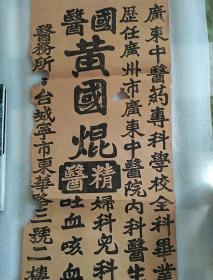 廣東中醫葯專科學校全科畢業
歷任廣州市廣東中醫院內科醫生
國醫
黃國焜
精醫
婦科兒科
吐血咳血
醫務所
台城寧市東華路三號二樓